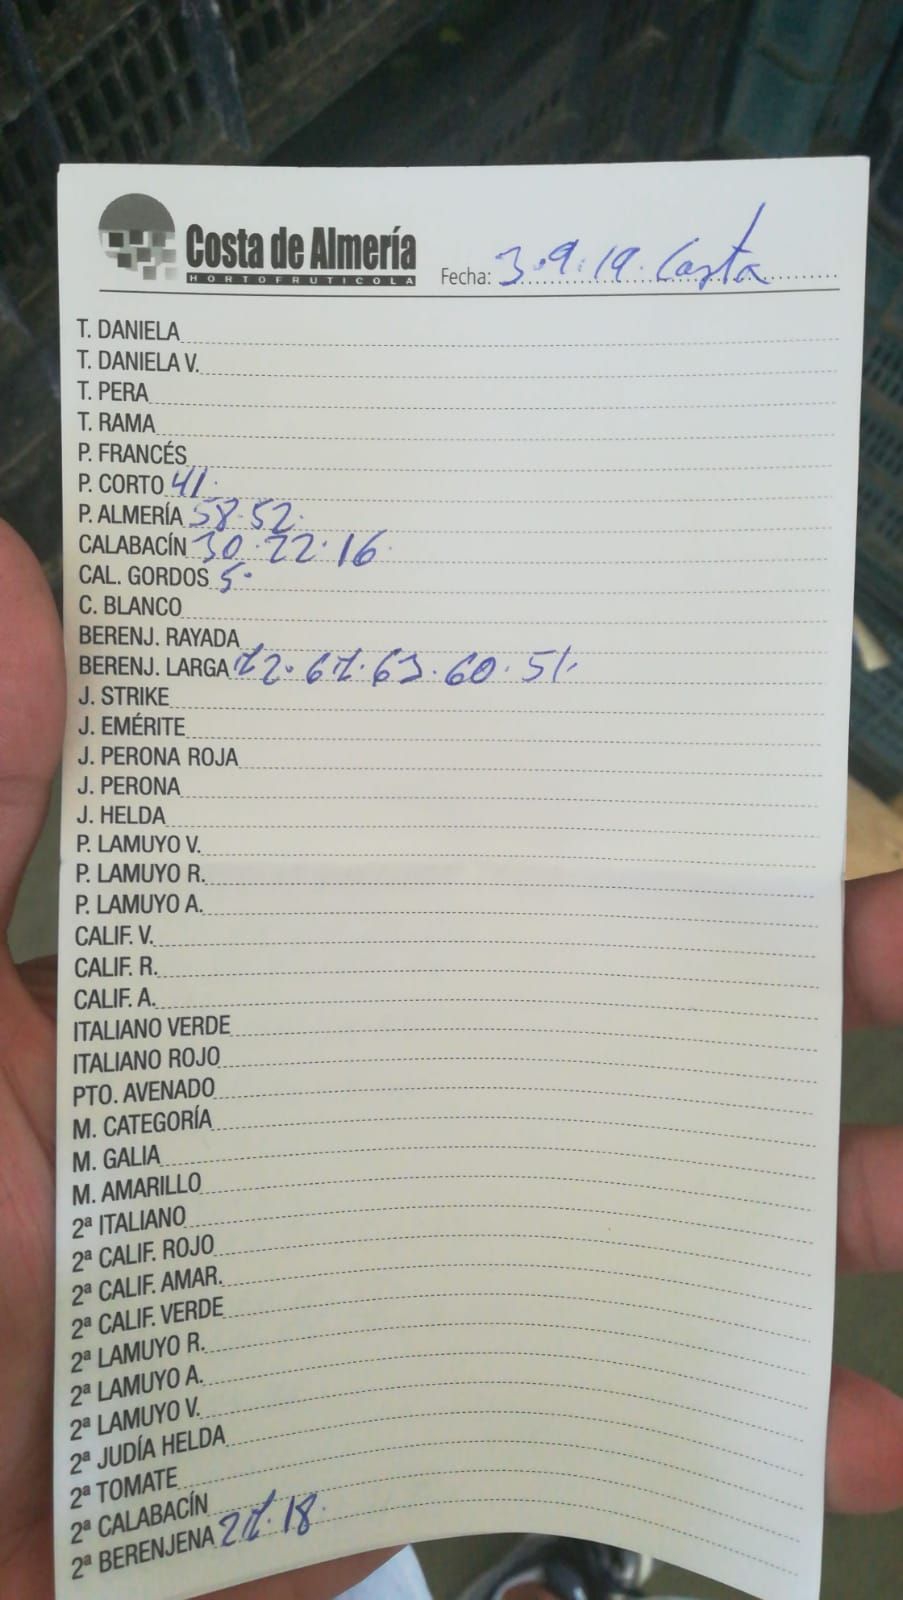 Costa de Almería
HORTOFRUTICOLA
Fecha: 3.9.19. Costa
T. DANIELA
T. DANIELA V.
T. PERA
T. RAMA
P. FRANCÉS
P. CORTO 41.
P. ALMERÍA 58.52.
CALABACÍN 30.22.16.
CAL. GORDOS 5.
C. BLANCO
BERENJ. RAYADA
BERENJ. LARGA 72.67.63.60.51.
J. STRIKE
J. EMÉRITE
J. PERONA ROJA
J. PERONA
J. HELDA
P. LAMUYO V.
P. LAMUYO R.
P. LAMUYO A.
CALIF. V.
CALIF. R.
CALIF. A.
ITALIANO VERDE
ITALIANO ROJO
PTO. AVENADO
M. CATEGORÍA
M. GALIA
M. AMARILLO
2ª ITALIANO
2ª CALIF. ROJO
2ª CALIF. AMAR.
2ª CALIF. VERDE
2ª LAMUYO R.
2ª LAMUYO A.
2ª LAMUYO V.
2ª JUDÍA HELDA
2ª TOMATE
2ª CALABACÍN
2ª BERENJENA 27.18.